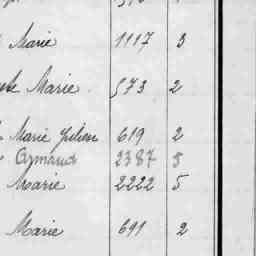 Marie 1117 3
Marie 573 2
Marie Julien 619 2
Armand 2387 8
Marie 2222 5
Marie 691 2